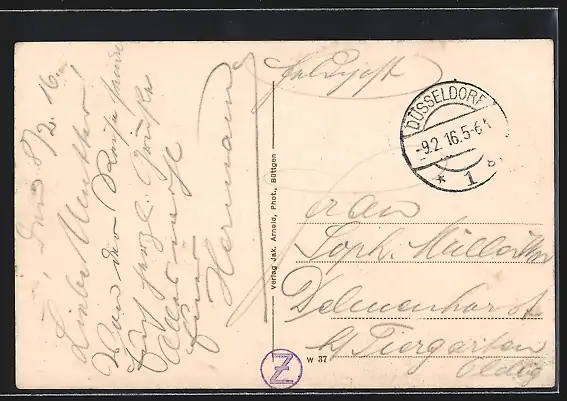 Dus. 8/2. 16.
Liebe Mutter!
Von der Reise sende
Dir herzl. Grüße
Hermann
Feldpost
DÜSSELDORF
-9.2.16.5-6
* 1
Frau
Soph. Müller Wwe
Delmenhorst
b/ Tiergarten
Oldbg
Verlag Jak. Arnold, Phot., Büttgen
W 37
Z